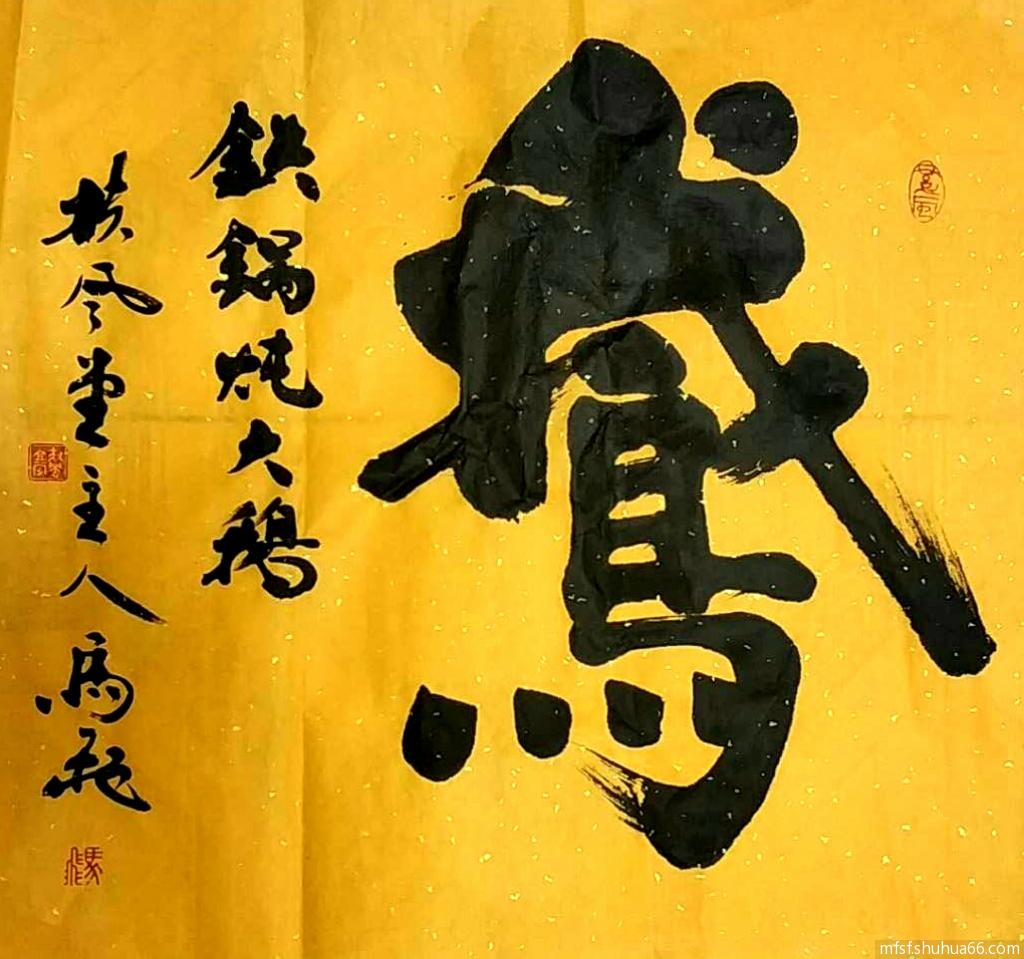 鵞
鉄鍋炖大鵝
扶风堂主人馬
mfsf.shuhua66.com